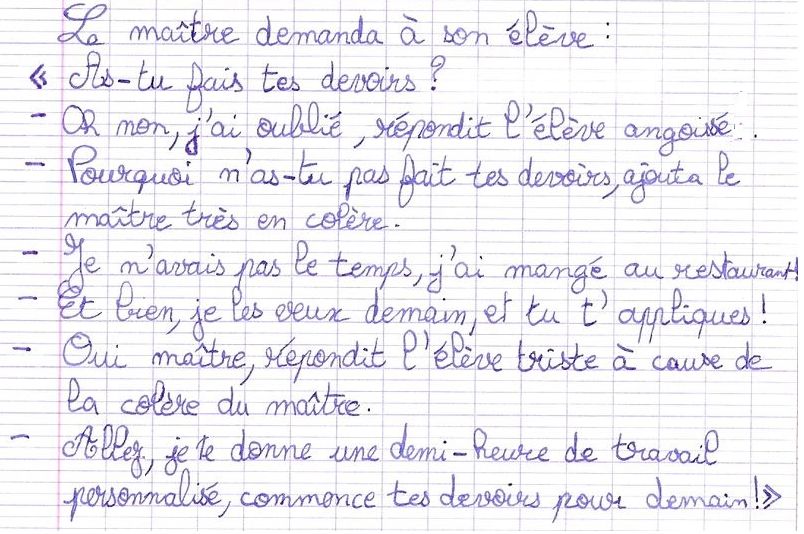 Le maître demanda à son élève :
« As-tu fais tes devoirs ?
- Oh non, j'ai oublié, répondit l'élève angoissé.
- Pourquoi n'as-tu pas fait tes devoirs, ajouta le
maître très en colère.
- Je n'avais pas le temps, j'ai mangé au restaurant !
- Et bien, je les veux demain, et tu t'appliques !
- Oui maître, répondit l'élève triste à cause de
la colère du maître.
- Allez, je te donne une demi-heure de travail
personnalisé, commence tes devoirs pour demain ! »